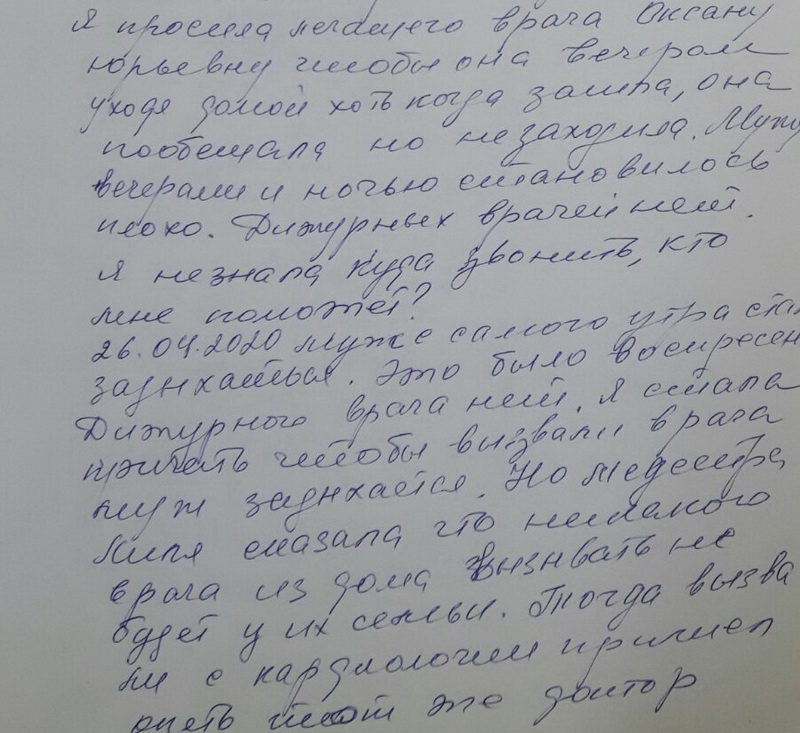 Я просила лечащего врача Оксану
юрьевну чтобы она вечером
уходя домой хоть когда зашла, она
пообещала но незаходила. Мужу
вечерами и ночью становилось
плохо. Дижурных врачей нет.
Я незнала куда звонить, кто
мне поможет?
26.04.2020 муж с самого утра стал
задыхаться. Это было воскресен
Дижурного врача нет. Я стала
кричать чтобы вызвали врача
муж задыхается. Но медсестра
сказала что никакого
врача из дома вызывать не
будет у их семьи. Тогда вызва
ли с кардиологии пришел
опеть тот же доктор